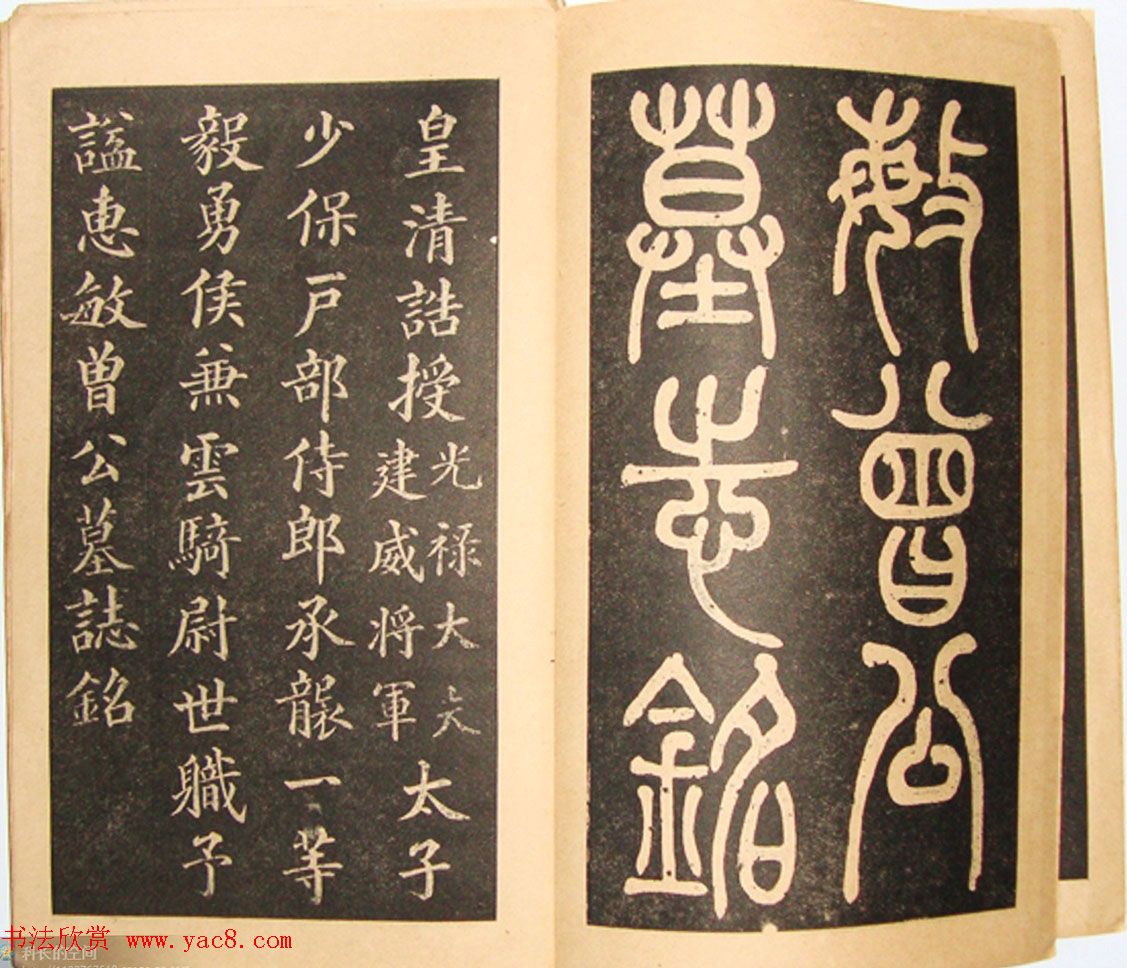 敏曾公
墓志銘
皇清誥授光禄大夫建威将軍太子
少保戸部侍郎承襲一等
毅勇侯兼雲騎尉世職予
謚惠敏曾公墓誌銘
书法欣赏 www.yac8.com
科长的空间